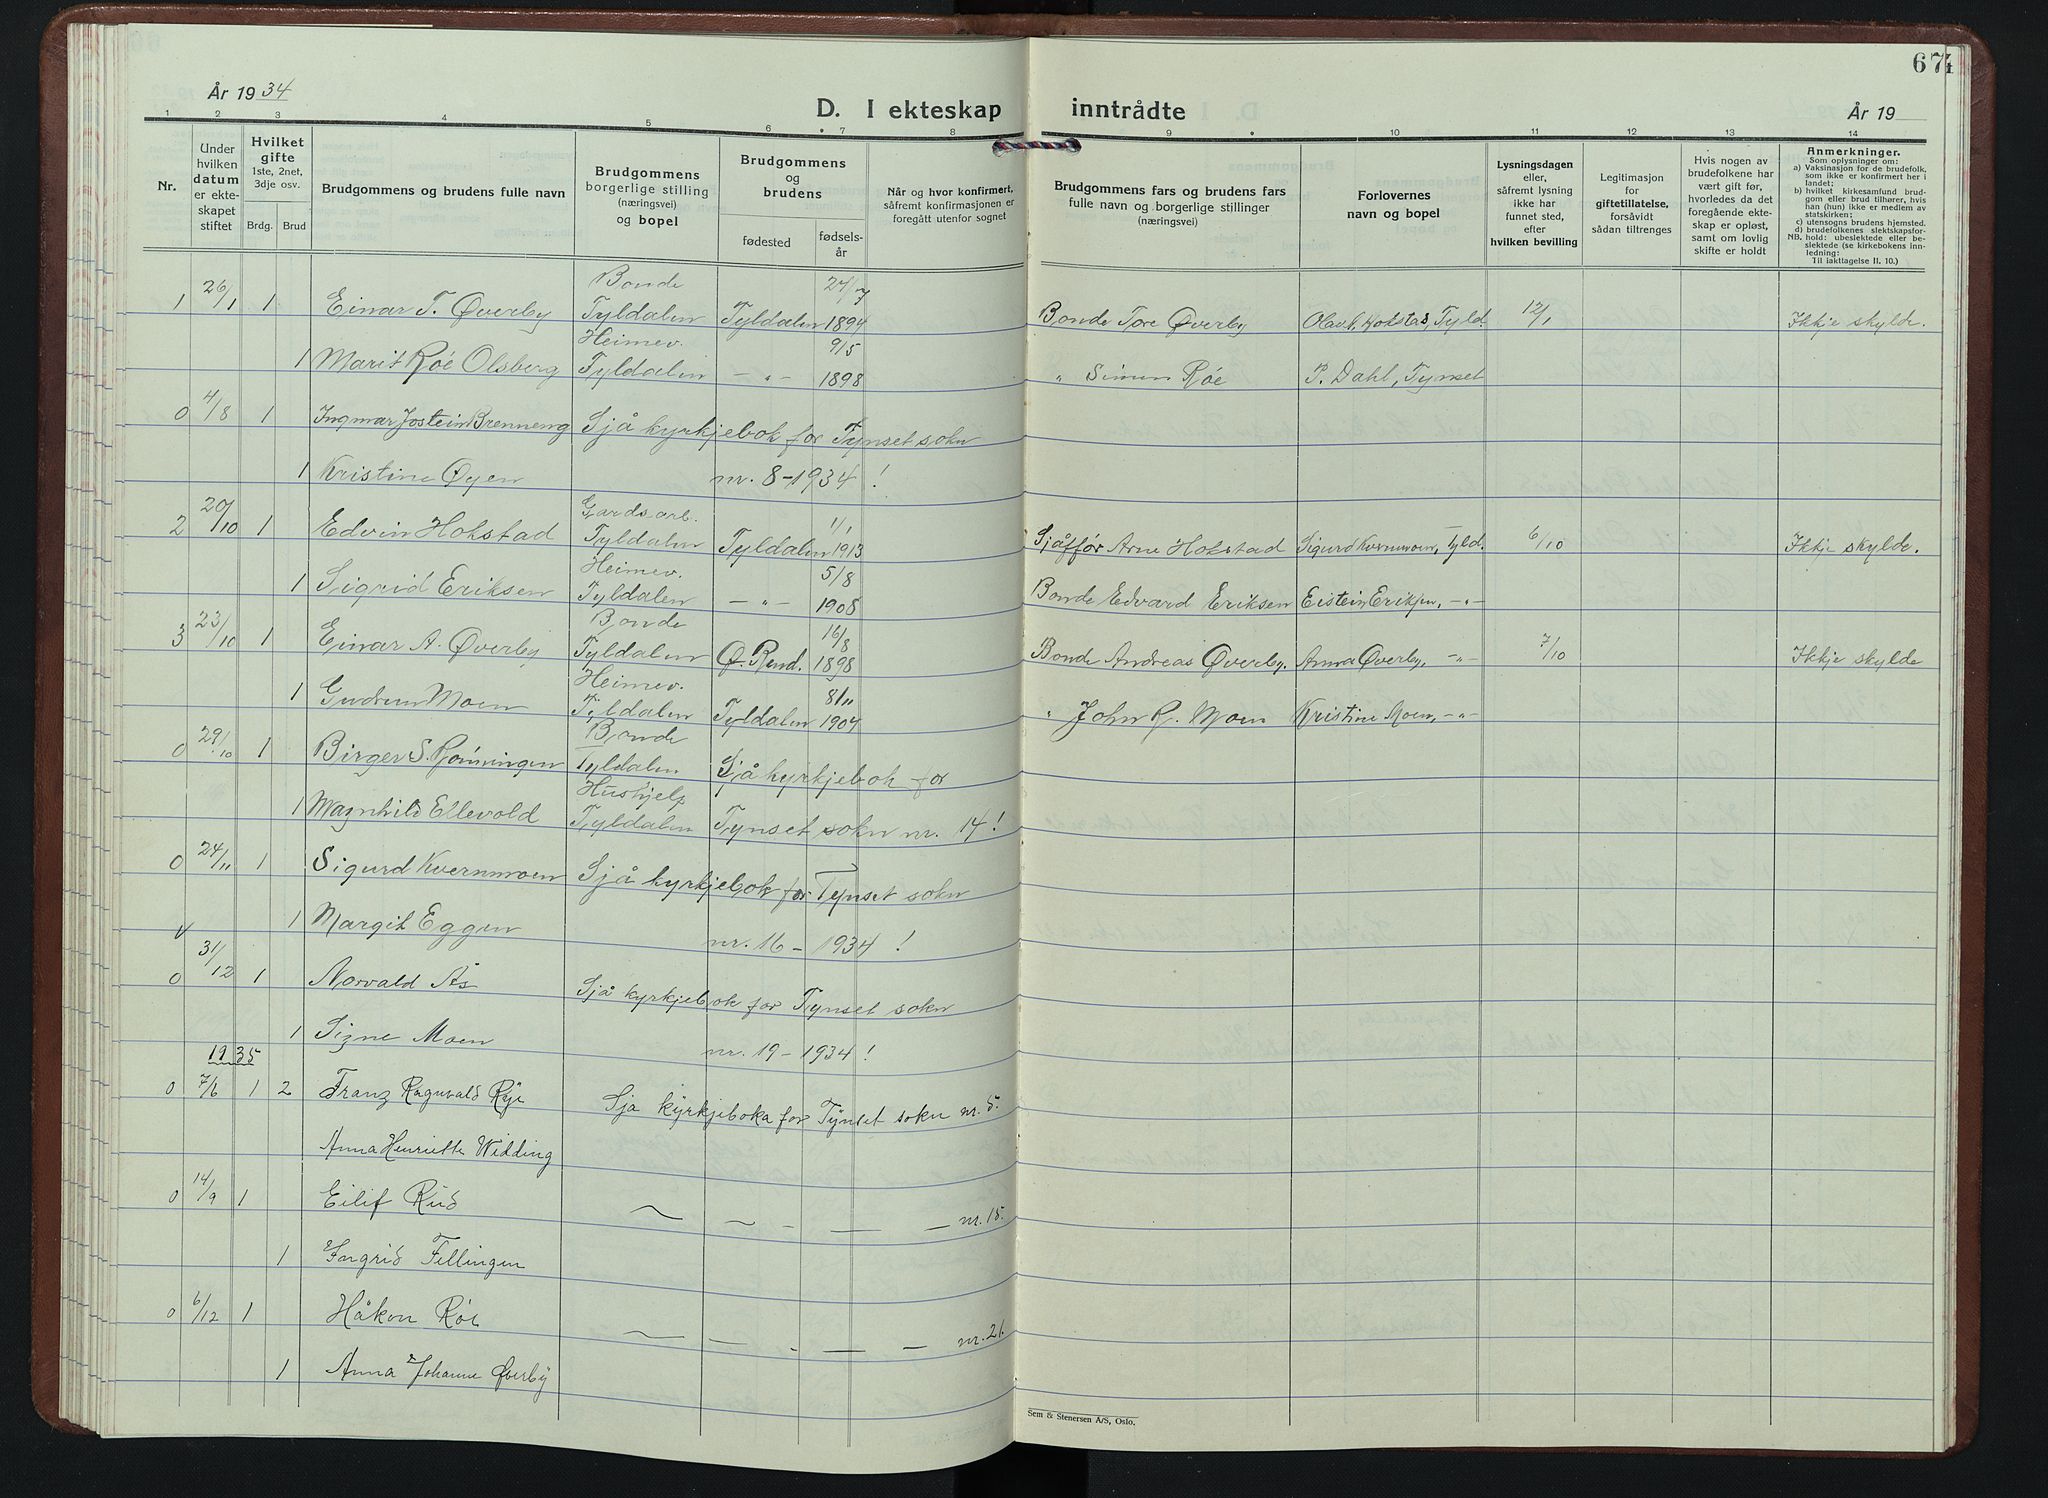 674
År 1934
D. I ekteskap inntrådte
År 19
1 2 3 4 5 6 7 8 9 10 11 12 13 14
Nr.
Under hvilken datum er ekteskapet stiftet
Hvilket gifte 1ste, 2net, 3dje osv.
Brdg. Brud
Brudgommens og brudens fulle navn
Brudgommens borgerlige stilling (næringsvei) og bopel
Brudgommens og brudens
fødested
fødselsår
Når og hvor konfirmert, såfremt konfirmasjonen er foregått utenfor sognet
Brudgommens fars og brudens fars fulle navn og borgerlige stillinger (næringsvei)
Forlovernes navn og bopel
Lysningsdagen eller, såfremt lysning ikke har funnet sted, efter hvilken bevilling
Legitimasjon for giftetillatelse, forsåvidt sådan tiltrenges
Hvis nogen av brudefolkene har vært gift før, hvorledes da det foregående ekteskap er opløst, samt om lovlig skifte er holdt
Anmerkninger.
Som oplysninger om:
a) Vaksinasjon for de brudefolk, som ikke er konfirmert her i landet;
b) hvilket kirkesamfund brudgom eller brud tilhører, hvis han (hun) ikke er medlem av statskirken;
c) utensogns brudens hjemsted.
d) brudefolkenes slektskapsforhold: ubeslektede eller beslektede (se kirkebokens innledning:
NB. Til iakttagelse II. 10.)
1 26/1 1 Einar T. Øverby Bonde Tyldalen Tyldalen 24/7 1894 Bonde Tore Øverby Olav Hokstad, Tyld. 12/1 Ikkje skylde.
1 Marit Røe Olsberg Heimev. Tyldalen -"- 9/5 1898 " Simen Røe P. Dahl, Tynset
0 4/8 1 Ingmar Jostein Brenneng Sjå kyrkjebok for Tynset sokn
1 Kristine Øyen nr. 8-1934!
2 20/10 1 Edvin Hokstad Gardsarb. Tyldalen Tyldalen 1/1 1913 Sjåffør Arne Hokstad Sigurd Kvernmoen, Tyld. 6/10 Ikkje skylde.
1 Sigrid Eriksen Heimev. Tyldalen -"- 5/8 1908 Bonde Edvard Eriksen Eistein Eriksen, -"-
3 23/10 1 Einar A. Øverby Bonde Tyldalen Ø. Rend. 16/8 1898 Bonde Andreas Øverby. Anna Øverby, -"- 7/10 Ikkje skylde
1 Gudrun Moen Heimev. Tyldalen Tyldalen 8/11 1904 " John R. Moen Kristine Moen, -"-
0 29/10 1 Birger S. Rønningen Bonde Tyldalen Sjå kyrkjebok for
1 Magnhild Ellevold Hushjelp Tyldalen Tynset sokn nr. 14!
0 24/11 1 Sigurd Kvernmoen Sjå kyrkjebok for Tynset sokn
1 Margit Eggen nr. 16 - 1934!
0 31/12 1 Norvald Ås Sjå kyrkjebok for Tynset sokn
1 Signe Moen nr. 19 - 1934!
1935
0 7/6 1 2 Franz Ragnvald Rye Sjå kyrkjeboka for Tynset sokn nr. 5.
Anna Henriette Widding
0 14/9 1 Eilif Rud — — - — — nr. 15.
1 Ingrid Fellingen
0 6/12 1 Håkon Røe — — - — — nr. 21.
1 Anna Johanne Øverby
Sem & Stenersen A/S, Oslo.